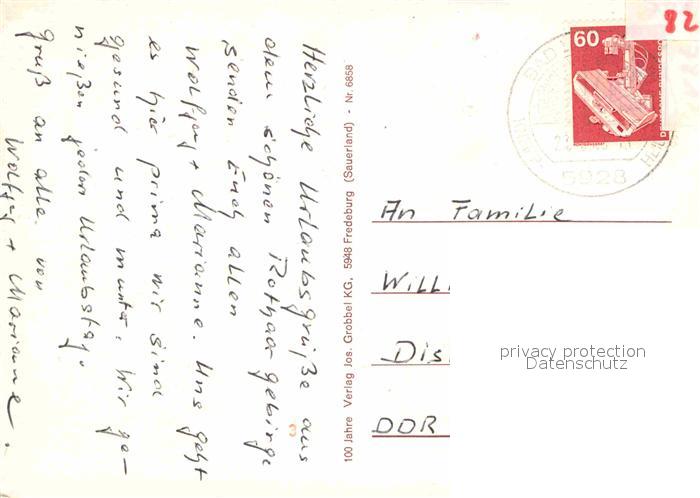 Herzliche Urlaubsgrüße aus
dem schönen Rothaargebirge
senden Euch allen
Wolfgang + Marianne. Uns geht
es hier prima wir sind
gesund und munter. Wir ge-
nießen jeden Urlaubstag.
Gruß an alle von
Wolfgang + Marianne.
100 Jahre Verlag Jos. Grobbel KG, 5948 Fredeburg (Sauerland) - Nr. 6858
82
60
DEUTSCHE BUNDESPOST
BAD
5928
An Familie
Willi
Dis
DDR
privacy protection
Datenschutz